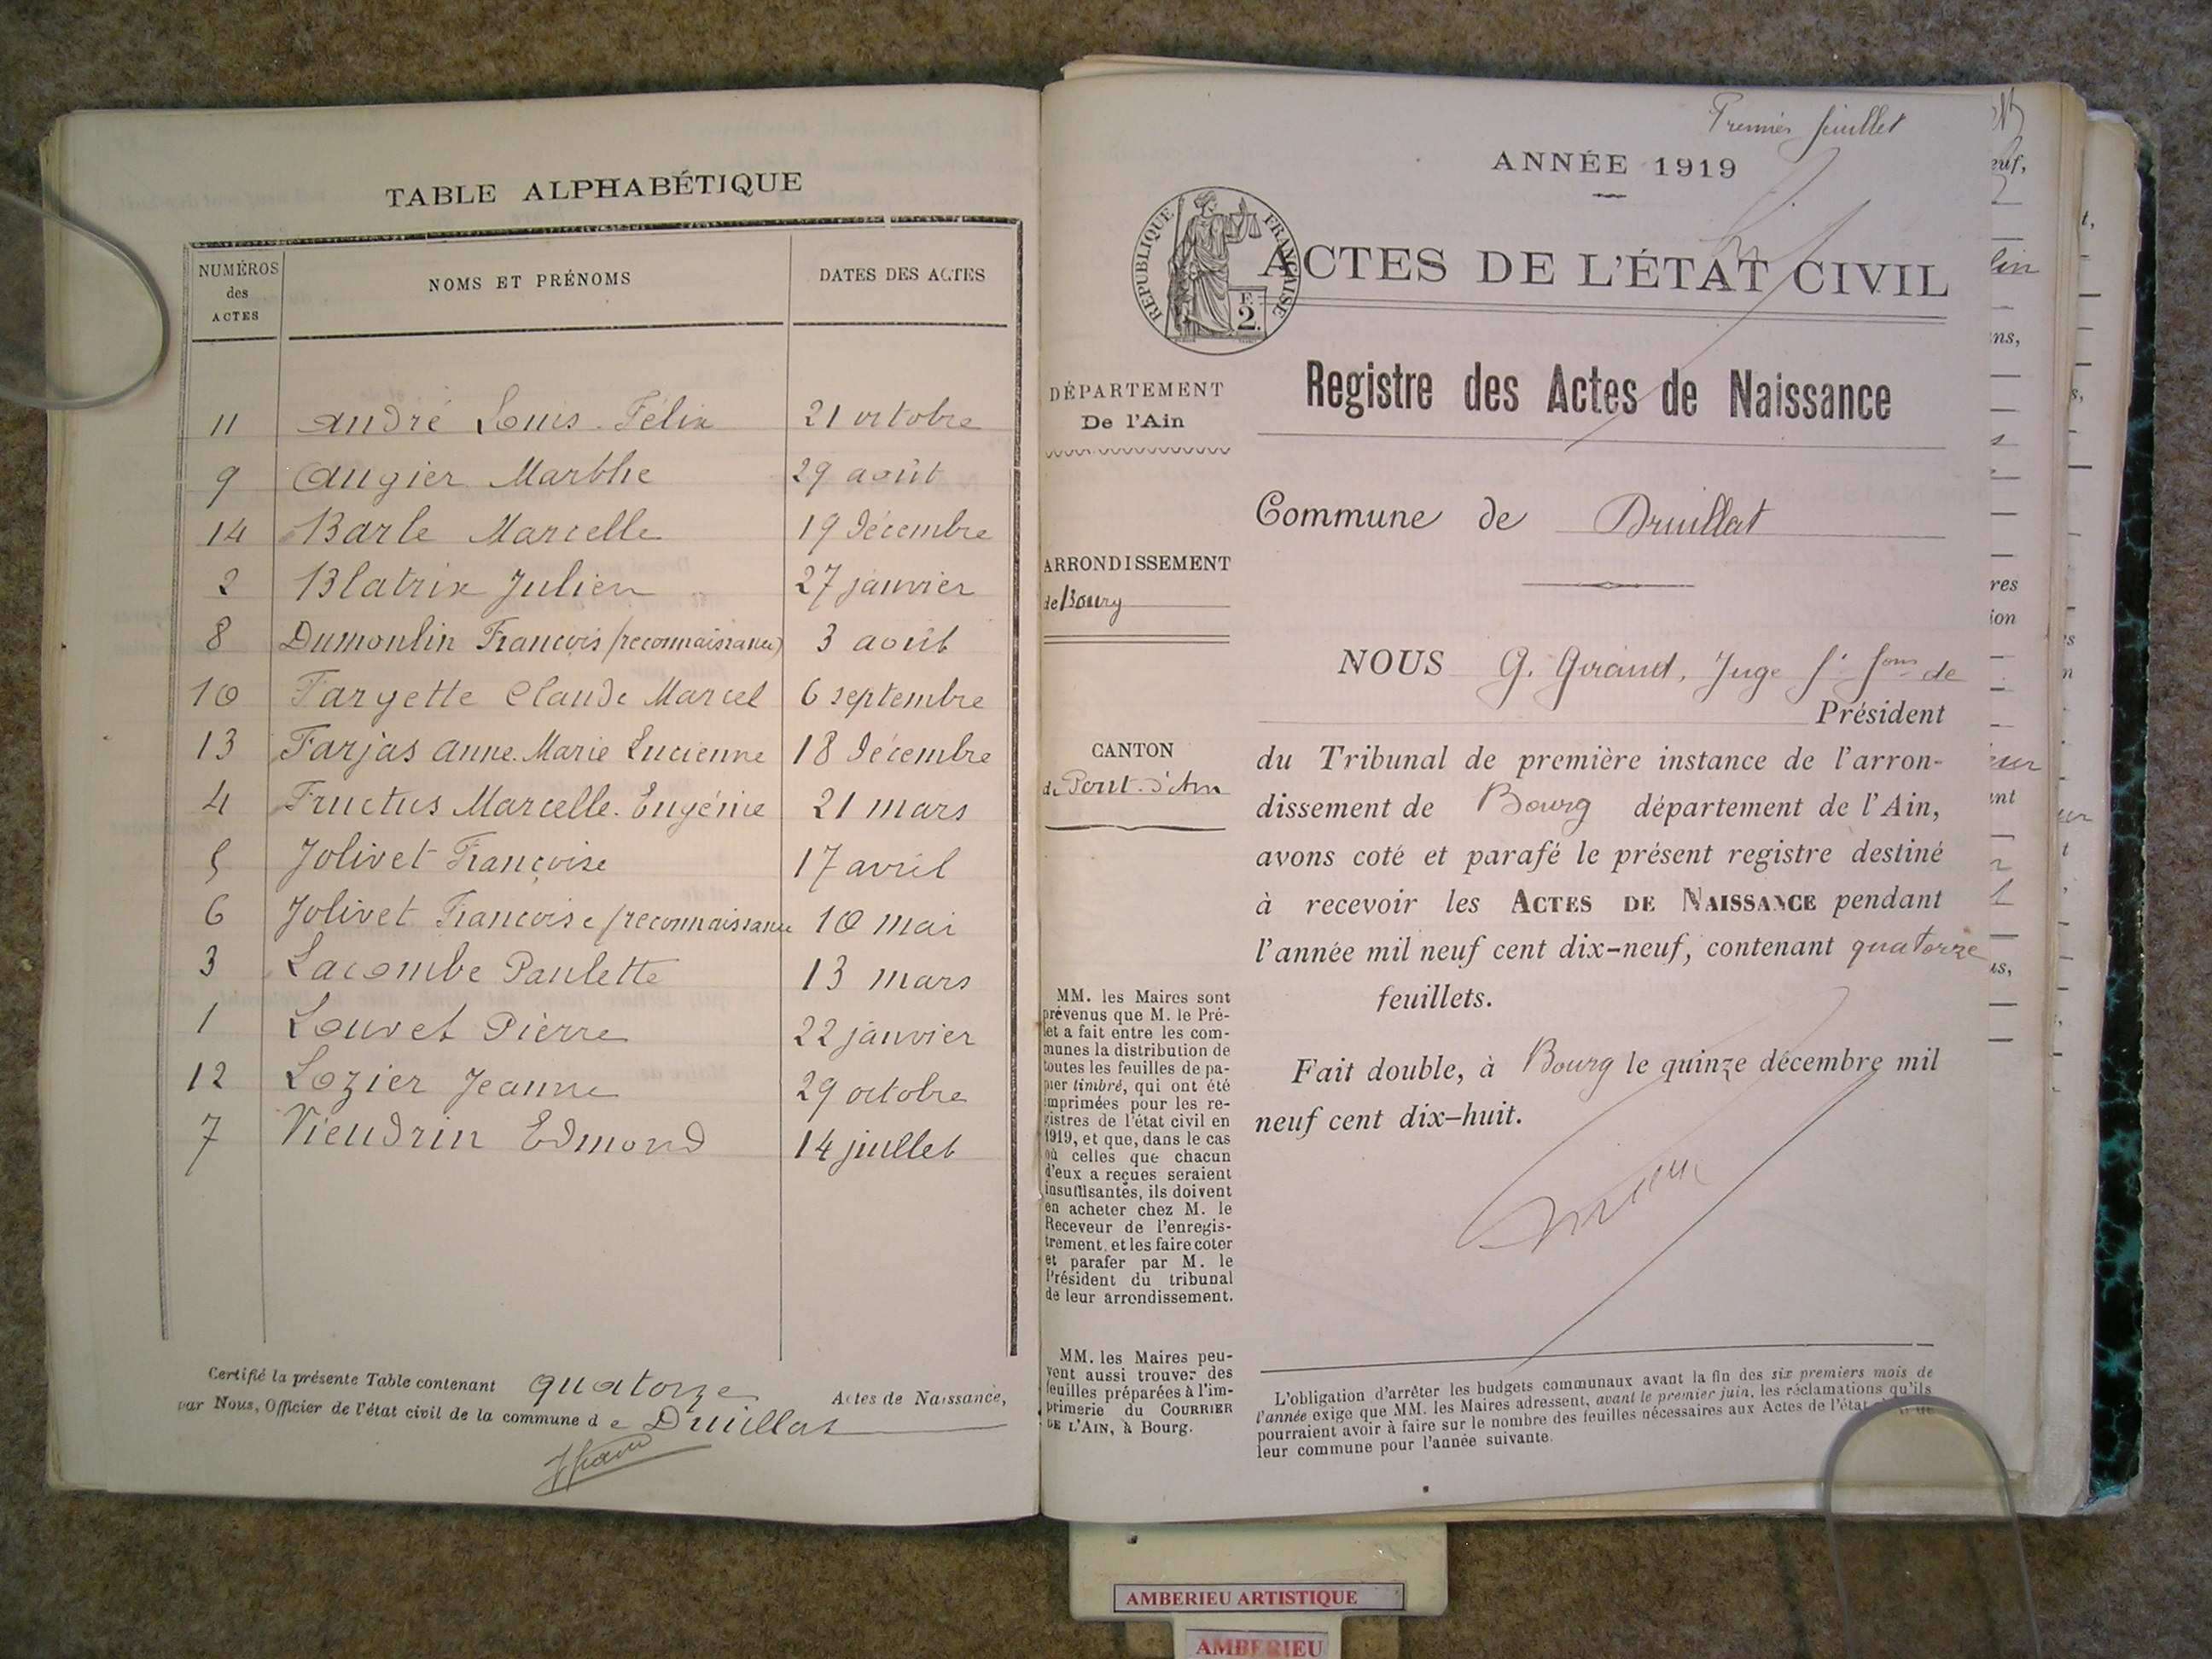 TABLE ALPHABÉTIQUE
NUMÉROS
des
ACTES
NOMS ET PRÉNOMS
DATES DES ACTES
11 André Louis-Félix 21 octobre
9 Augier Marthe 29 août
14 Barle Marcelle 19 décembre
2 Blatrix Julien 27 janvier
8 Dumoulin François (reconnaissance) 3 août
10 Fargette Claude Marcel 6 septembre
13 Farjas Anne-Marie Lucienne 18 décembre
4 Fructus Marcelle-Eugénie 21 mars
5 Jolivet Françoise 17 avril
6 Jolivet Françoise (reconnaissance 10 mai
3 Lacombe Paulette 13 mars
1 Louvet Pierre 22 janvier
12 Lozier Jeanne 29 octobre
7 Vieudrin Edmond 14 juillet
Certifié la présente Table contenant quatorze Actes de Naissance,
par Nous, Officier de l'état civil de la commune de Druillat
Premier feuillet
ANNÉE 1919
RÉPUBLIQUE FRANÇAISE
F.
2.
ACTES DE L'ÉTAT CIVIL
DÉPARTEMENT
De l'Ain
Registre des Actes de Naissance
Commune de Druillat
ARRONDISSEMENT
de Bourg
CANTON
de Pont-d'Ain
NOUS G. Giraud, Juge f. fons de
Président
du Tribunal de première instance de l'arron-
dissement de Bourg département de l'Ain,
avons coté et parafé le présent registre destiné
à recevoir les ACTES DE NAISSANCE pendant
l'année mil neuf cent dix-neuf, contenant quatorze
feuillets.
Fait double, à Bourg le quinze décembre mil
neuf cent dix-huit.
MM. les Maires sont
prévenus que M. le Pré-
fet a fait entre les com-
munes la distribution de
toutes les feuilles de pa-
pier timbré, qui ont été
imprimées pour les re-
gistres de l'état civil en
1919, et que, dans le cas
où celles que chacun
d'eux a reçues seraient
insuffisantes, ils doivent
en acheter chez M. le
Receveur de l'enregis-
trement, et les faire coter
et parafer par M. le
Président du tribunal
de leur arrondissement.
MM. les Maires peu-
vent aussi trouver des
feuilles préparées à l'im-
primerie du COURRIER
DE L'AIN, à Bourg.
L'obligation d'arrêter les budgets communaux avant la fin des six premiers mois de
l'année exige que MM. les Maires adressent, avant le premier juin, les réclamations qu'ils
pourraient avoir à faire sur le nombre des feuilles nécessaires aux Actes de l'état civil de
leur commune pour l'année suivante.
AMBERIEU ARTISTIQUE
AMBERIEU